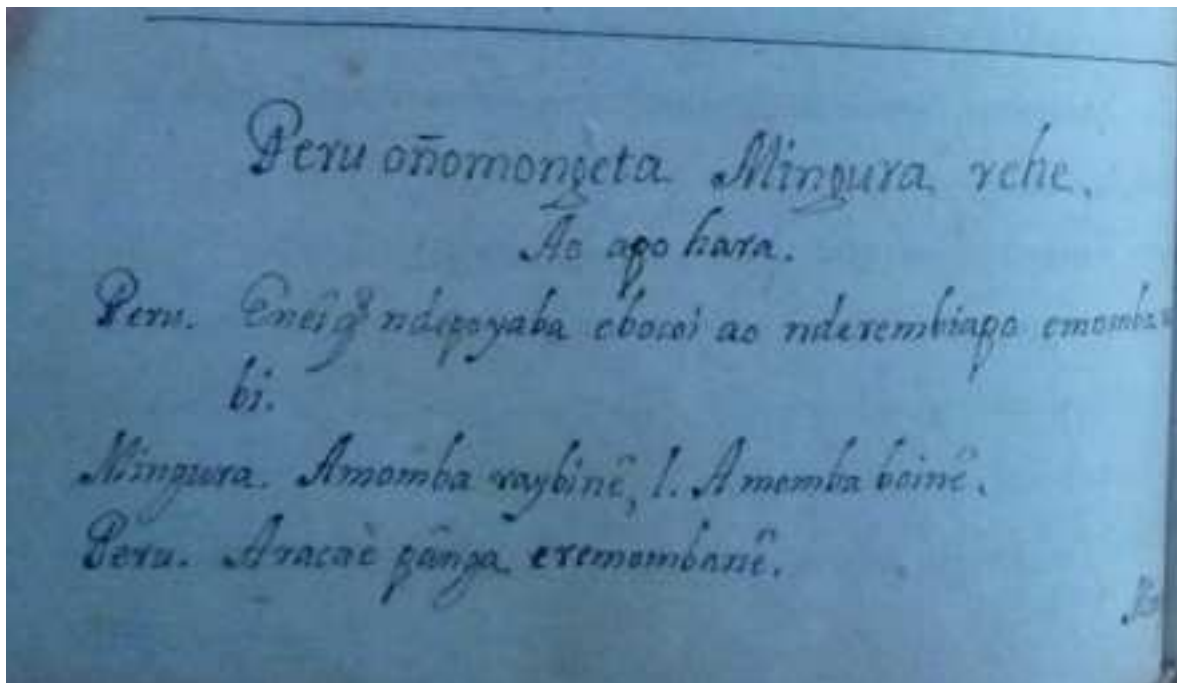 Peru oñomongeta Mingura rehe.
Ao apo hara.
Peru. Eneî ndepoyaba ebocoi ao nderembiapo emomba
bi.
Mingura. Amomba raybinê, l. Amomba boinê.
Peru. Aracaè pânga eremombanê.